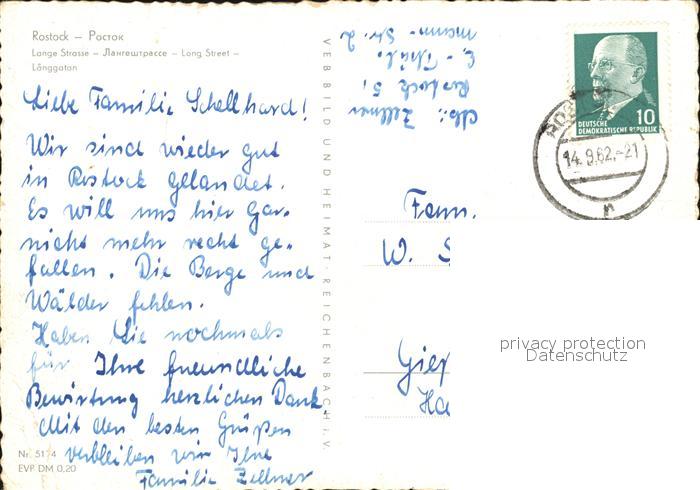 Rostock – Росток
Lange Strasse – Лангештрассе – Long Street –
Långgatan
Liebe Familie Schellhard!
Wir sind wieder gut
in Rostock gelandet.
Es will uns hier gar-
nicht mehr recht ge-
fallen. Die Berge und
Wälder fehlen.
Haben Sie nochmals
für Ihre freundliche
Bewirtung herzlichen Dank
Mit den besten Grüßen
verbleiben wir Ihre
Familie Zellner
Nr. 5174
EVP DM 0,20
VEB BILD UND HEIMAT · REICHENBACH I. V.
Abs: Zellner
Rostock 5,
E.-Thäl-
mann-Str. 2
DEUTSCHE
DEMOKRATISCHE REPUBLIK
10
14.9.62.-21
r
Fam.
W. S
privacy protection
Datenschutz
Gier
Ha